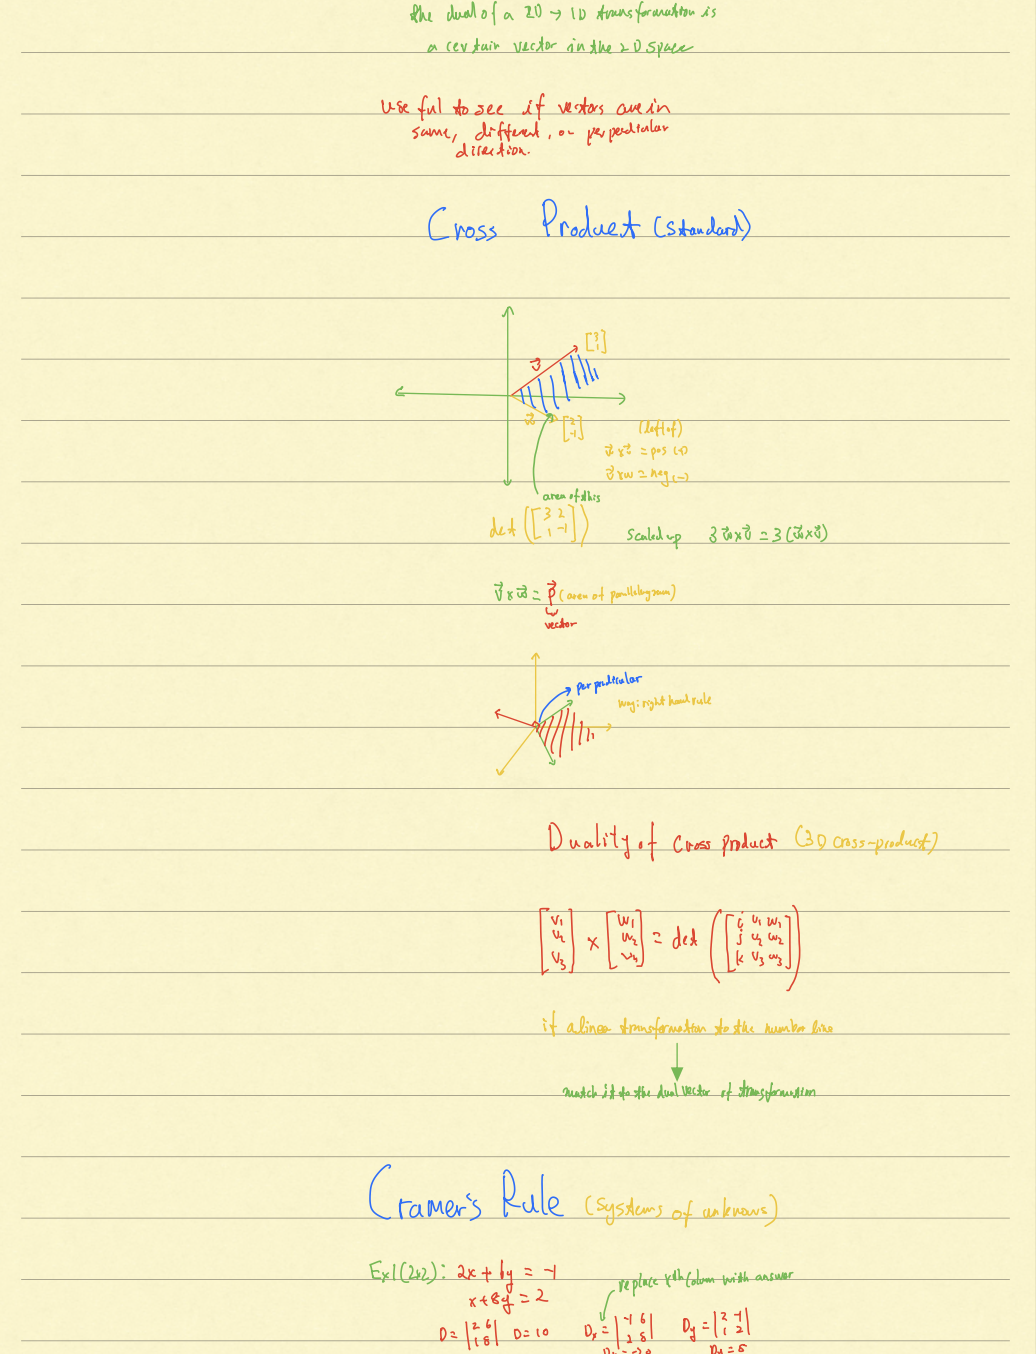 the dual of a 2D → 1D transformation is
a certain vector in the 2D space
useful to see if vectors are in
same, different, or perpendicular
direction.
Cross Product (standard)
[3 1]
v⃗
w⃗ [2 -1]
(left of)
w⃗ x v⃗ = pos (+)
v⃗ x w = neg (-)
area of this
det ([3 2
1 -1])
Scaled up 3 w⃗ x v⃗ = 3 (w⃗ x v⃗)
v⃗ x w⃗ = p⃗ (area of parallelogram)
vector
perpendicular
way: right hand rule
Duality of Cross product (3D cross-product)
[v1 v2 v3] x [w1 w2 w3] = det ([i v1 w1
j v2 w2
k v3 w3])
if a linear transformation to the number line
match it to the dual vector of transformation
Cramer's Rule (Systems of unknowns)
Ex1 (2x2): 2x + 6y = -1
x + 8y = 2
replace xth Column with answer
D = |2 6
1 8| D = 10
Dx = |-1 6
2 8|
Dy = |2 -1
1 2|
Dx = -20
Dy = 5